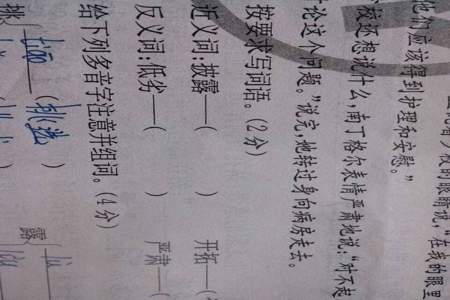 着少校的眼睛说，“在我的眼里
他们应该得到护理和安慰。”
校还想说什么，南丁格尔表情严肃地说：“对不起
讨论这个问题。”说完，她转过身向病房走去。
按要求写词语。（2分）
近义词：披露—（ ） 开拓—（
反义词：低劣—（ ） 严肃—（
给下列多音字注意并组词。（4分）
挑 tiāo （挑选） 露